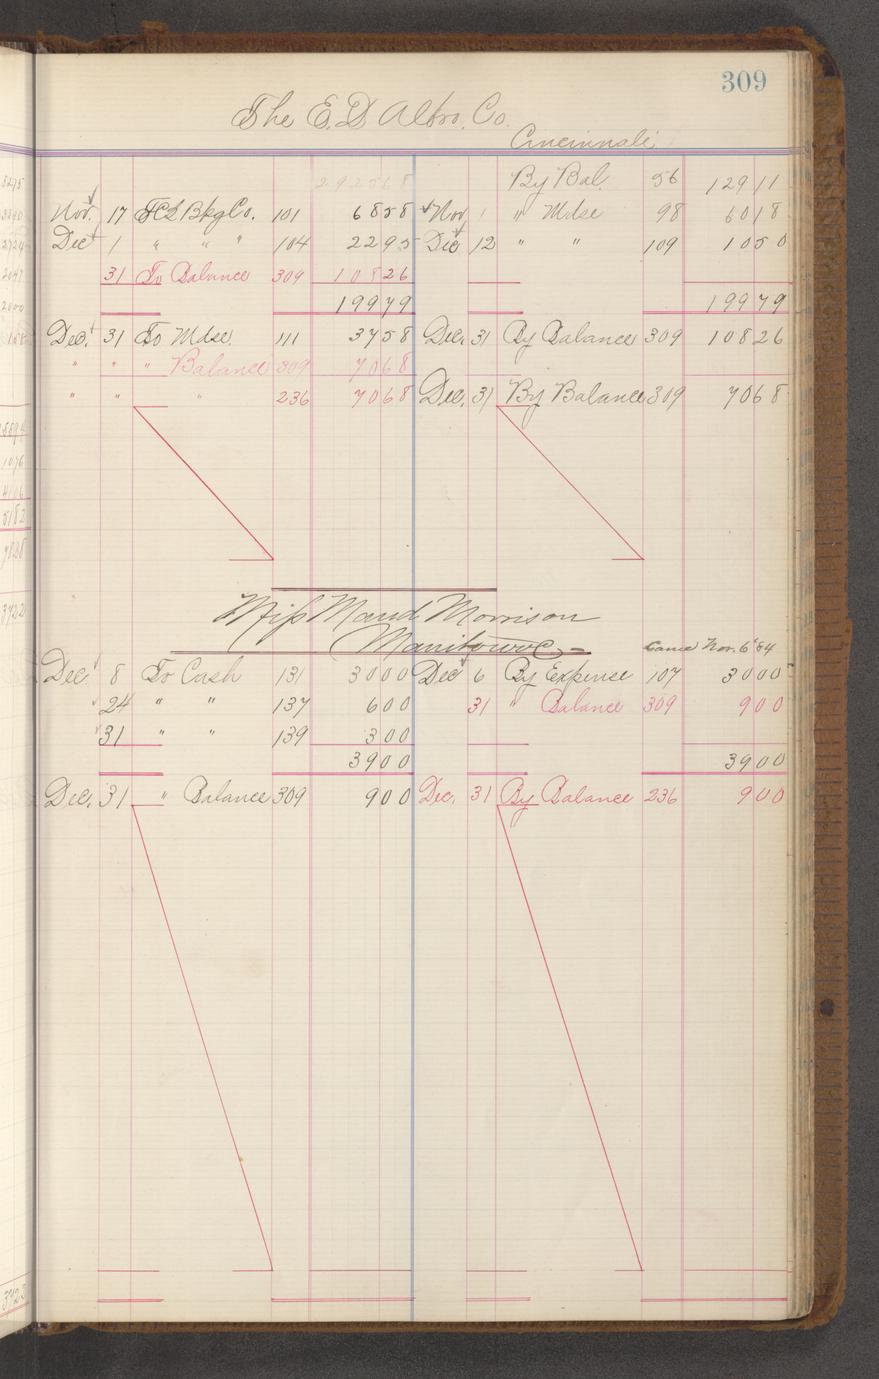 309
The E. D. Albro. Co.
Cincinnati
292568 By Bal. 56 129 11
Nov. 17 101 68 58 Nov 1 " Mdse 98 60 18
Dec 1 " " " 104 22 95 Dec 12 " " 109 10 50
31 To Balance 309 108 26
199 79 199 79
Dec. 31 To Mdse. 111 37 58 Dec. 31 By Balance 309 108 26
" " " Balance 309 70 68
" " " 236 70 68 Dec. 31 By Balance 309 70 68
Miss Maud Morrison
Manitowoc Came Nov. 6" 84
Dec. 8 To Cash 131 30 00 Dec 6 By Expense 107 30 00
24 " " 137 6 00 31 " Balance 309 9 00
31 " " 139 3 00
39 00 39 00
Dec. 31 " Balance 309 9 00 Dec. 31 By Balance 236 9 00